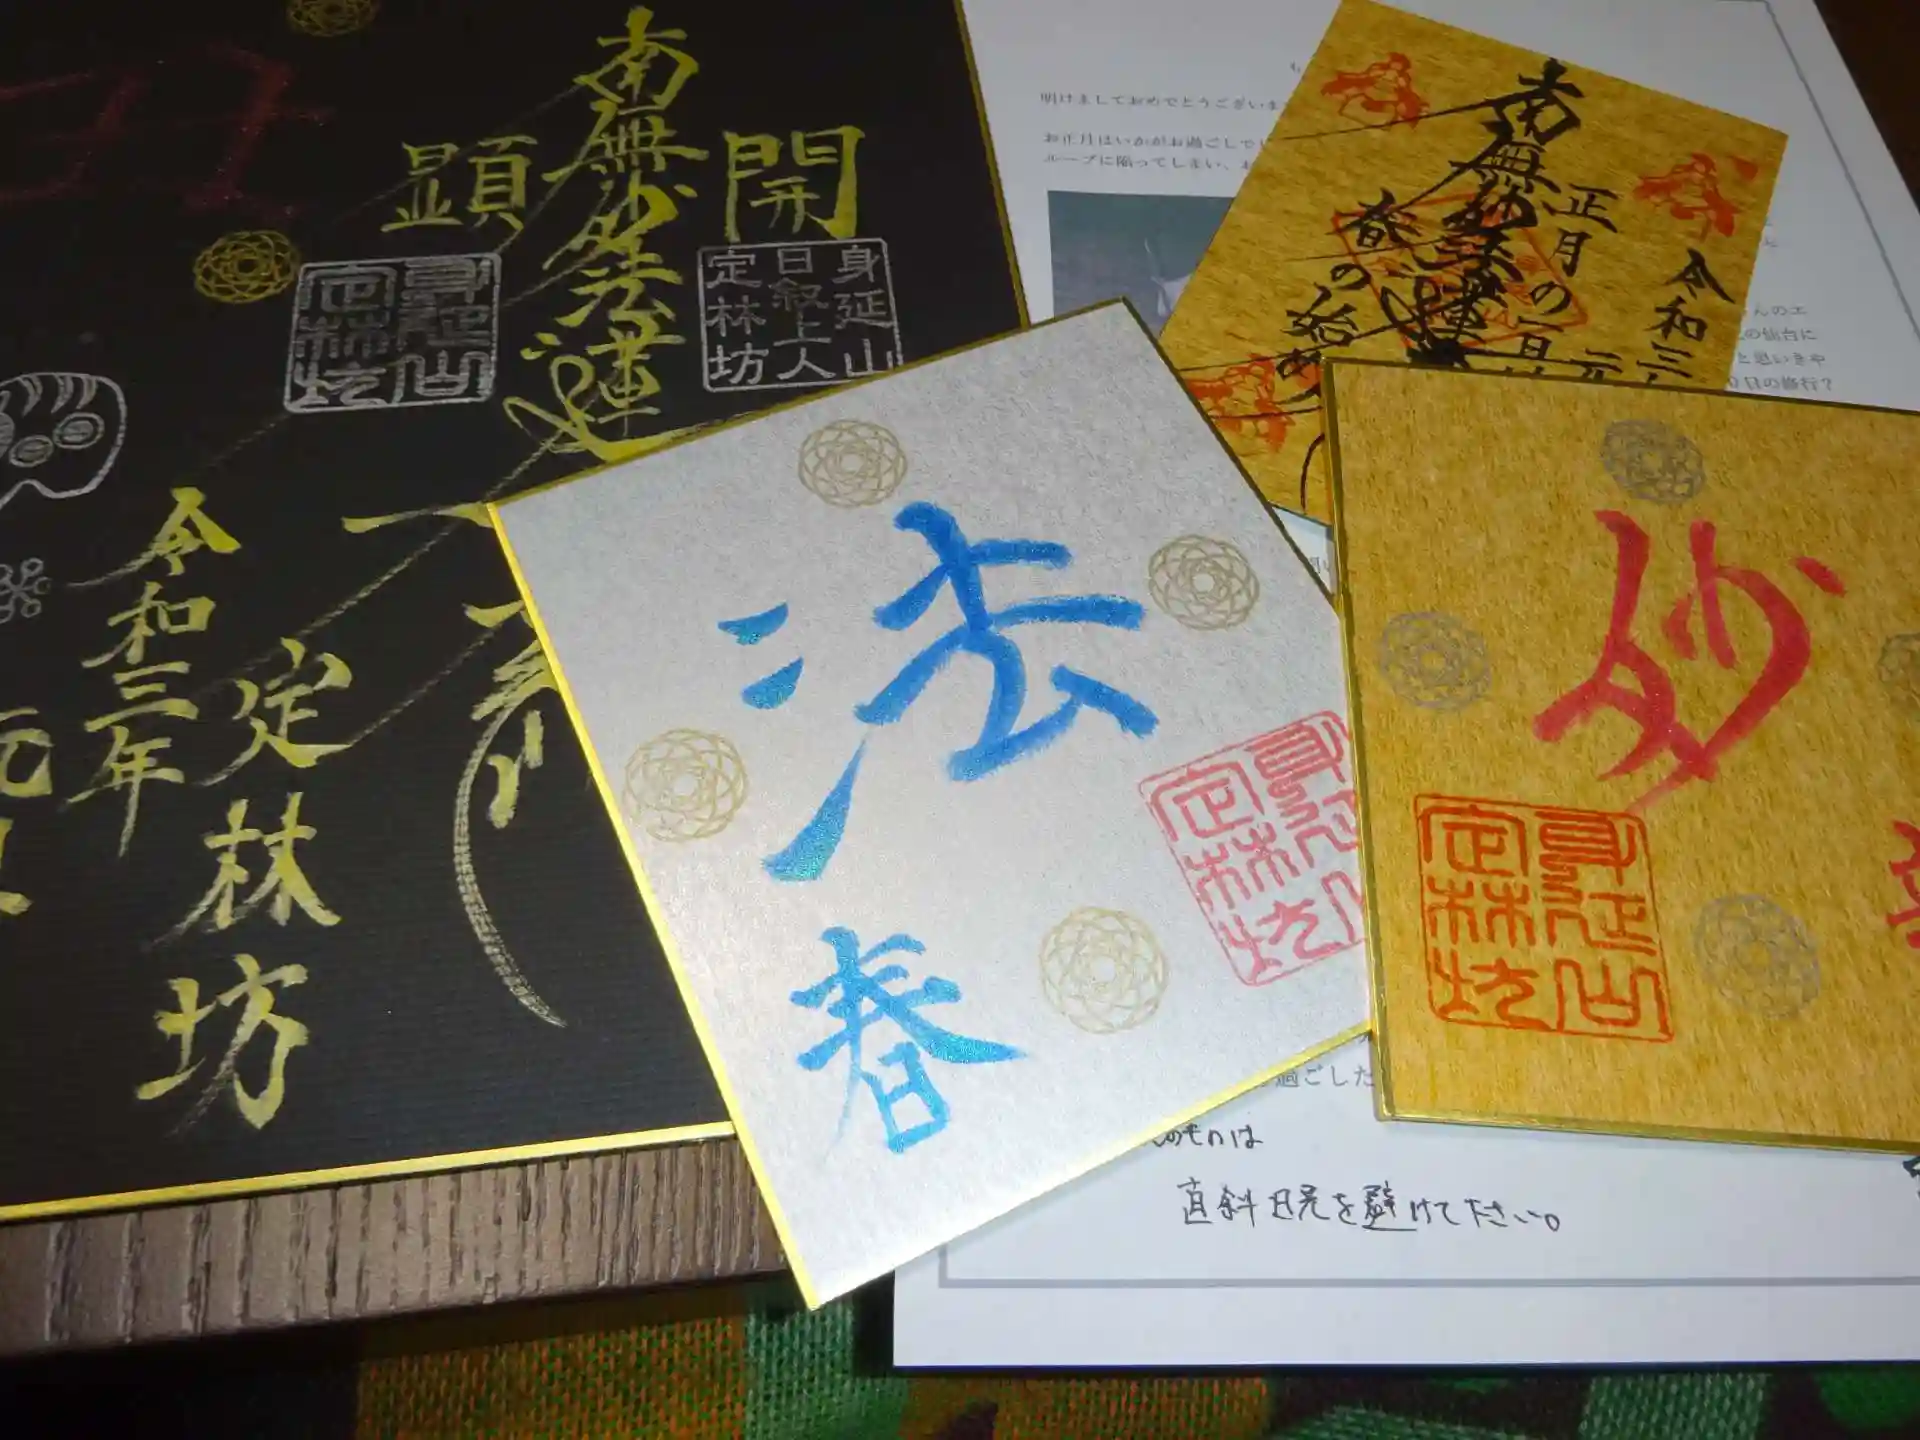 南無妙法蓮
開
顕
身延山
日叙上人
定林坊
身延山
定林坊
令和三年
定林坊
明けましておめでとうございま
お正月はいかがお過ごしで
ループに陥ってしまい、お
南無妙法蓮
正月の一日は
春の始め
令和三
んのエ
の仙台に
と思いきや
0日の修行?
法
春
身延山
定林坊
妙
身延山
定林坊
過ごした
のものは
直斜日光を避けて下さい。